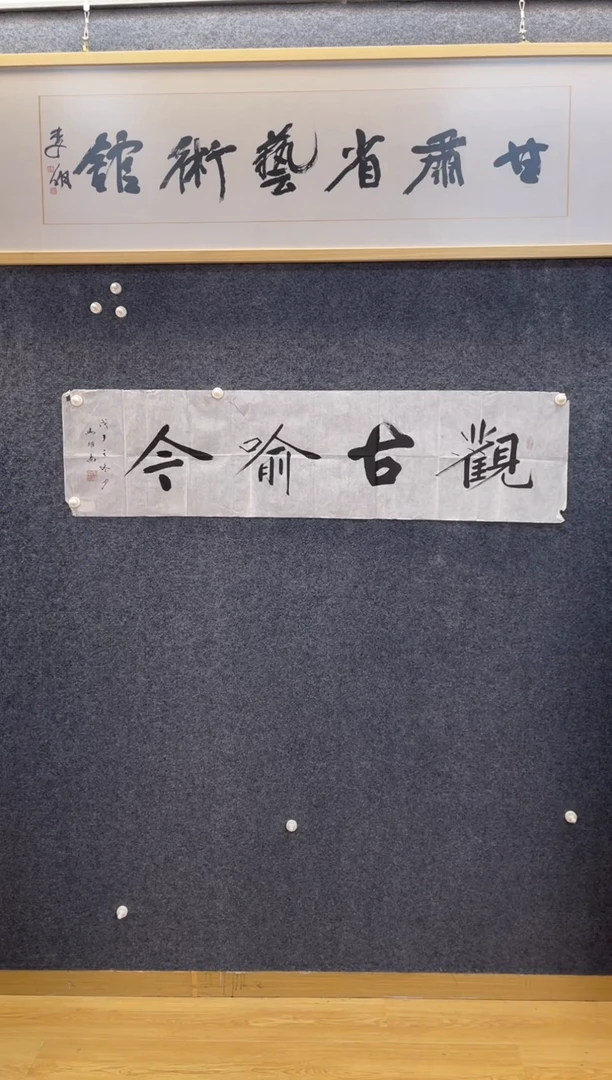 甘肅省藝術館
觀古喻今